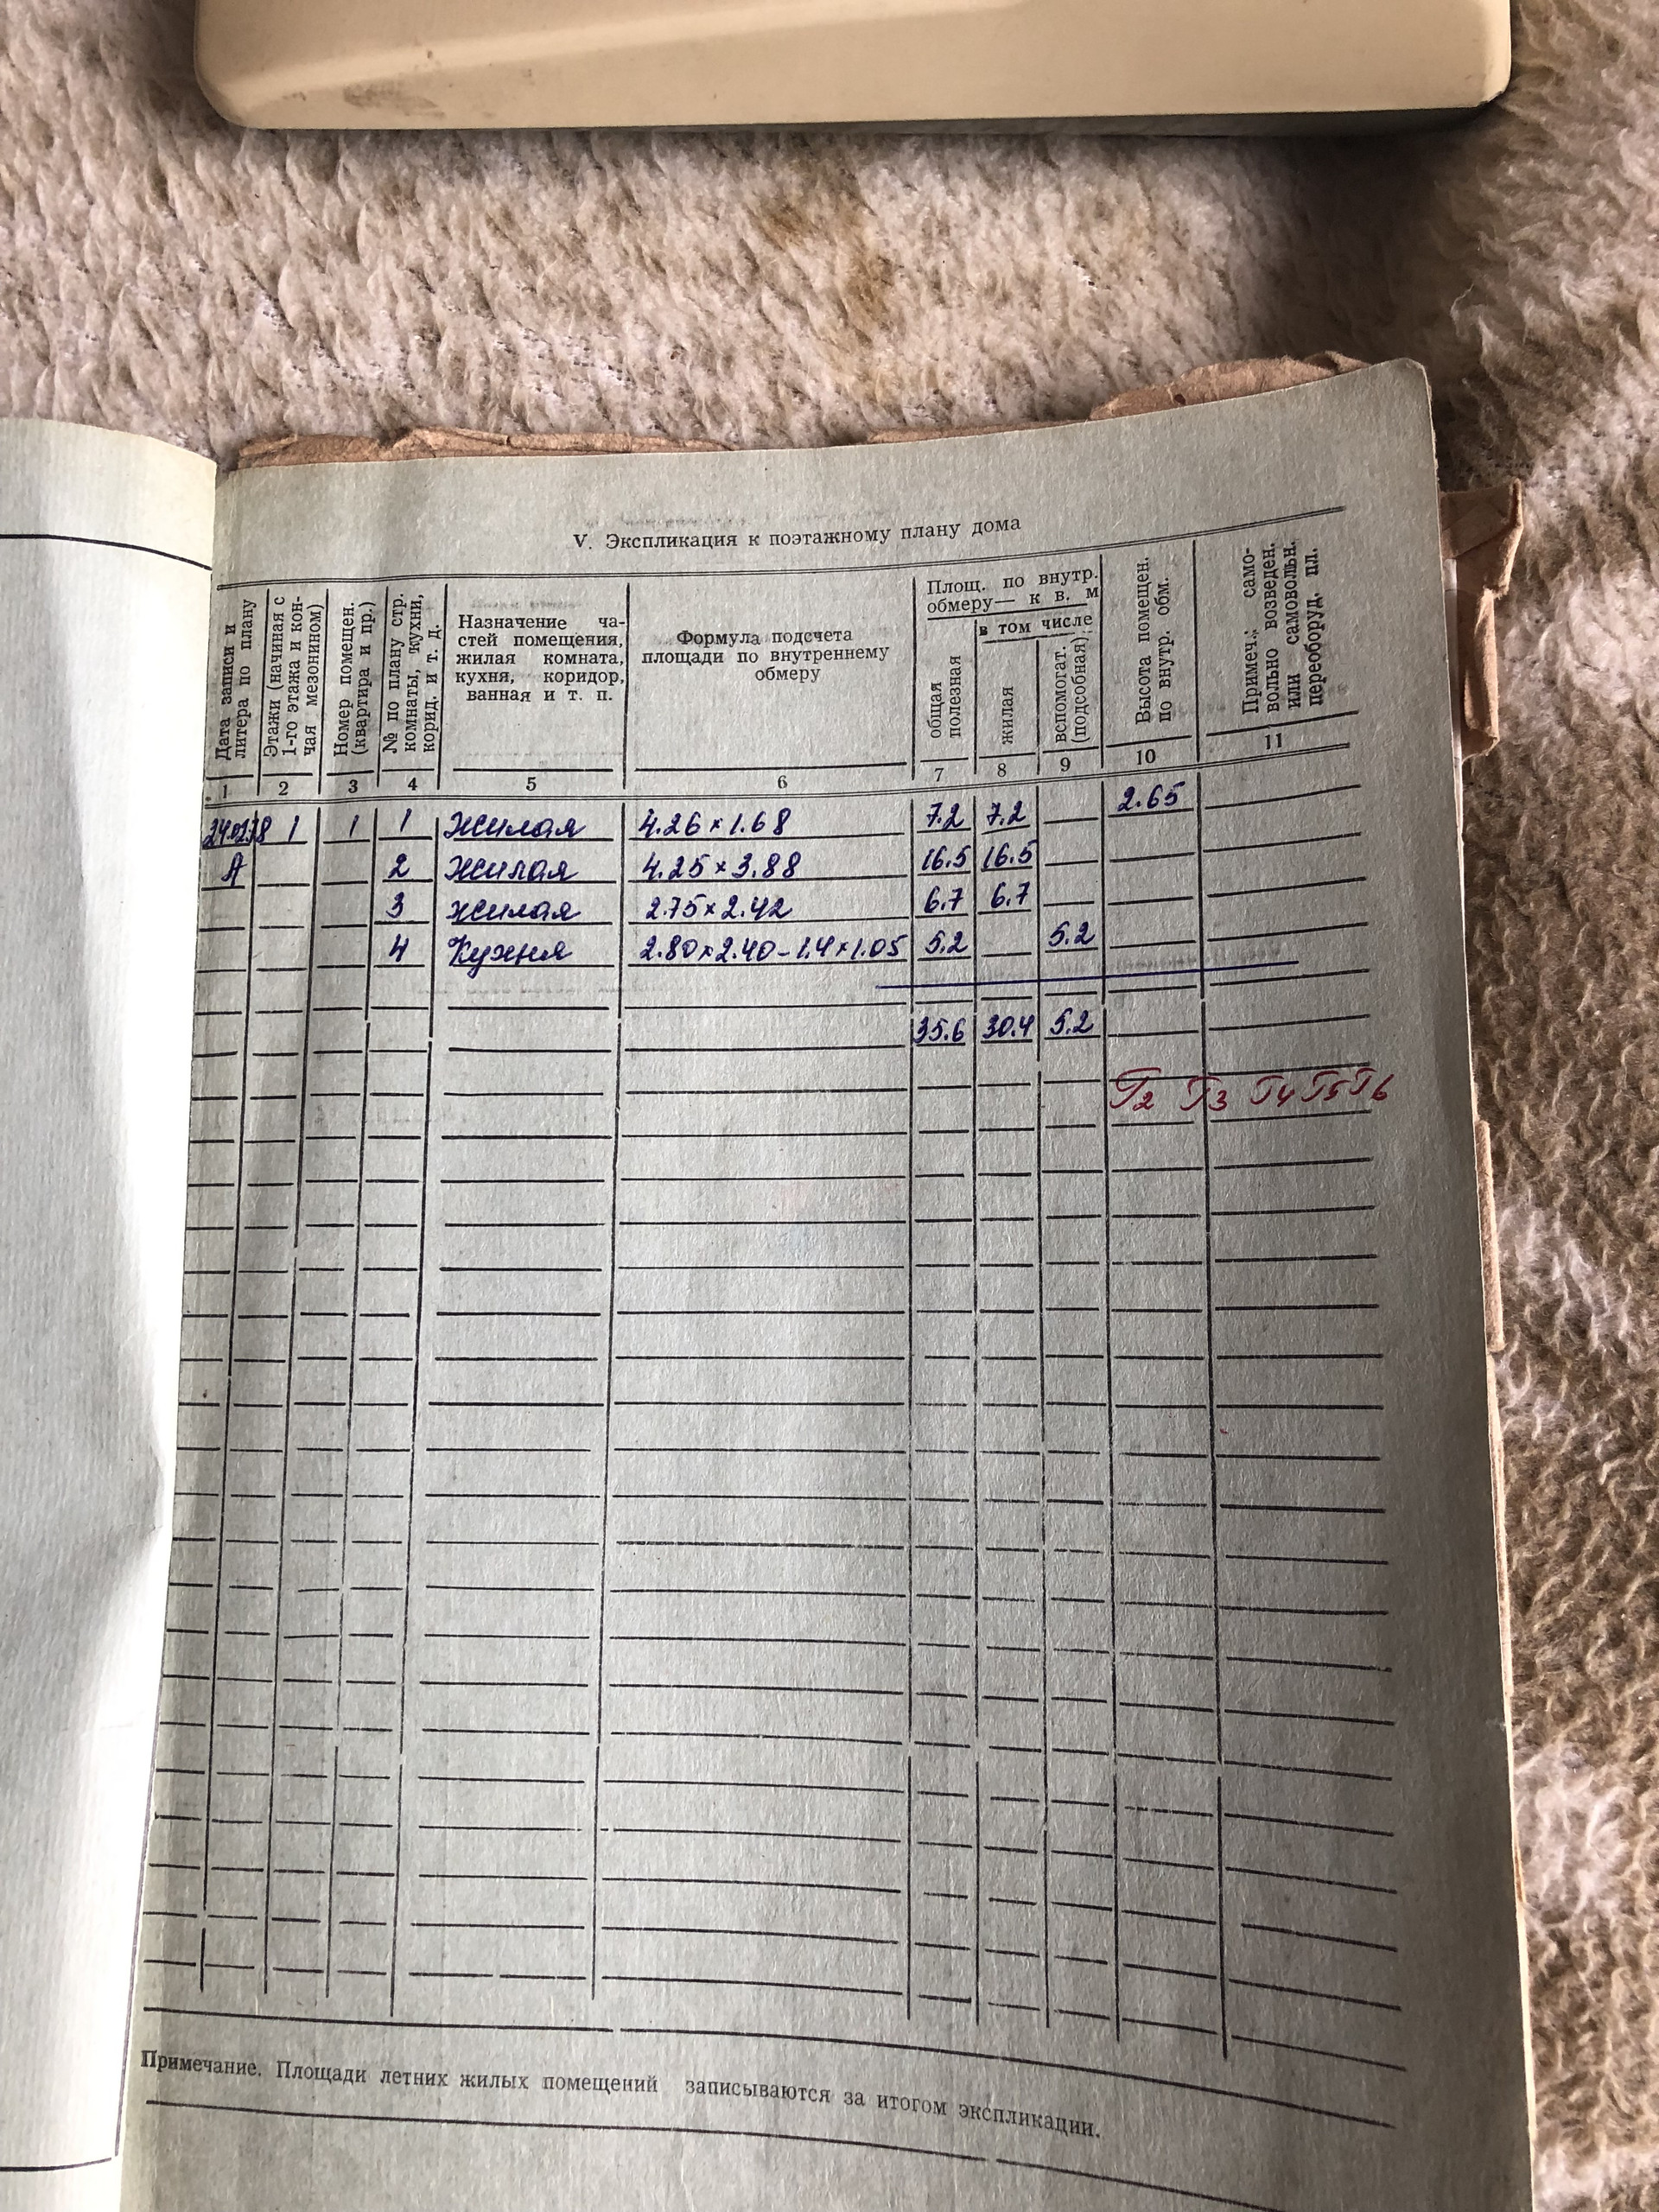 V. Экспликация к поэтажному плану дома
Дата записи и
литера по плану
Этажи (начиная с
1-го этажа и кон-
чая мезонином)
Номер помещен.
(квартира и пр.)
№ по плану стр.
комнаты, кухни,
корид. и т. д.
Назначение ча-
стей помещения,
жилая комната,
кухня, коридор,
ванная и т. п.
Формула подсчета
площади по внутреннему
обмеру
Площ. по внутр.
обмеру— к в. м
в том числе
общая
полезная
жилая
вспомогат.
(подсобная)
Высота помещен.
по внутр. обм.
Примеч.: само-
вольно возведен.
или самовольн.
переоборуд. пл.
1 2 3 4 5 6 7 8 9 10 11
1 1 1 Жилая 4.26×1.68 7.2 7.2 2.65
А 2 Жилая 4.25×3.88 16.5 16.5
3 жилая 2.75×2.42 6.7 6.7
4 Кухня 2.80×2.40-1.4×1.05 5.2 5.2
35.6 30.4 5.2
Г2 Г3 Г4 Г5 Г6
Примечание. Площади летних жилых помещений записываются за итогом экспликации.